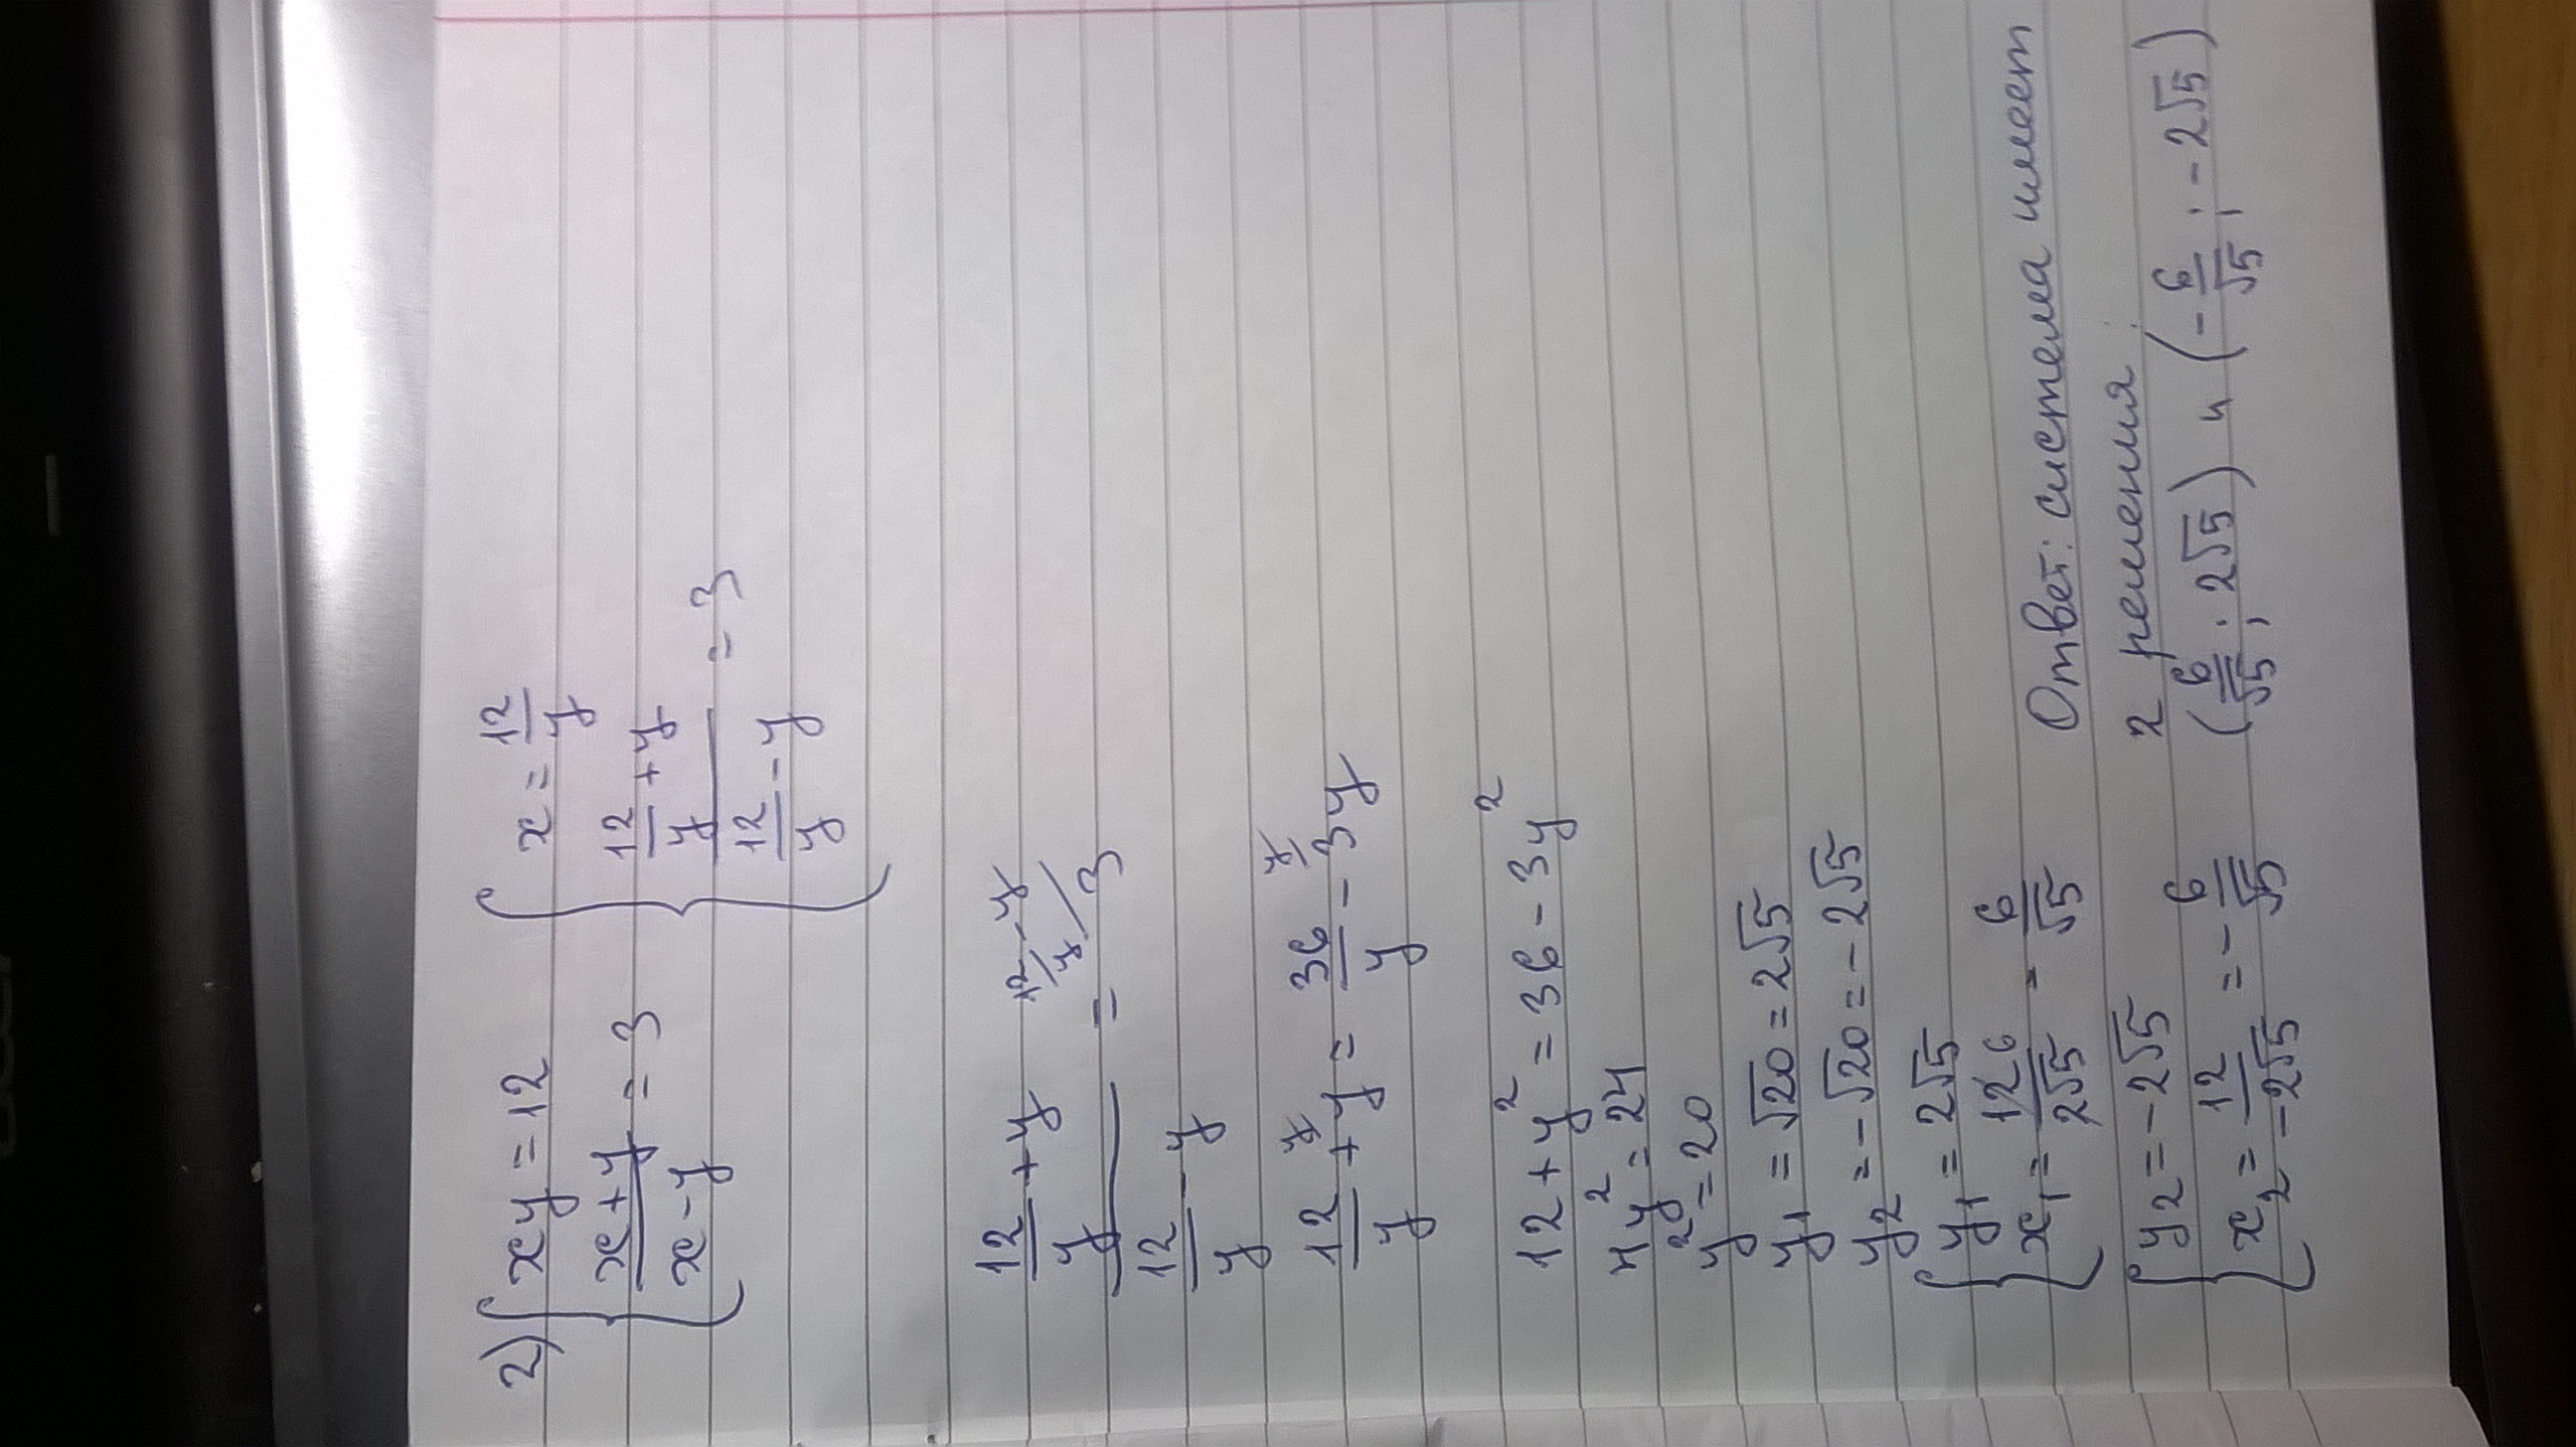 2) { xy = 12 { x = 12/y
(x+y)/(x-y) = 3 (12/y + y)/(12/y - y) = 3
(12/y + y)/(12/y - y) = 3 /12/y - y
12/y + y /y = 36/y - 3y /y
12 + y² = 36 - 3y²
4y² = 24
y² = 20
y₁ = √20 = 2√5
y₂ = -√20 = -2√5
{ y₁ = 2√5
x₁ = 12 6/2√5 = 6/√5
{ y₂ = -2√5
x₂ = 12/-2√5 = - 6/√5
Ответ: система имеет
2 решения:
(6/√5; 2√5) и (-6/√5; -2√5)